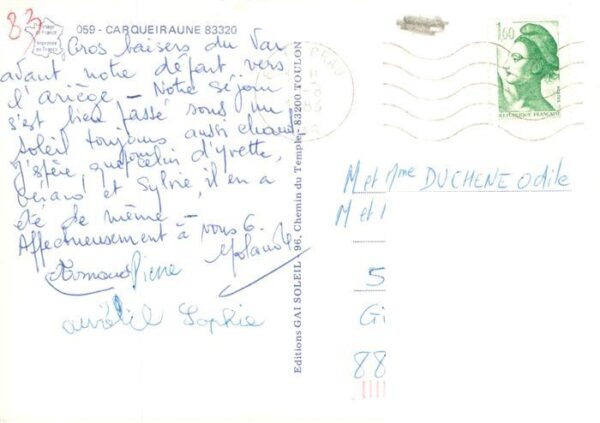 83
Image de France
Imprimée en France
059 - CARQUEIRAUNE 83320
Gros baisers du Var
avant notre départ vers
l'ariège - Notre séjour
s'est bien passé sous un
soleil toujours aussi chaud
J'espère, que celui d'Yvette,
Gérard et Sylvie, il en a
été de même -
Affectueusement à vous 6.
Yolande
Armand Pierre
aurélie Sophie
Editions GAI SOLEIL - 96, Chemin du Temple - 83200 TOULON
CRAU
1,60
REPUBLIQUE FRANÇAISE
M et Mme DUCHENE Odile
M et
5
Gi
88